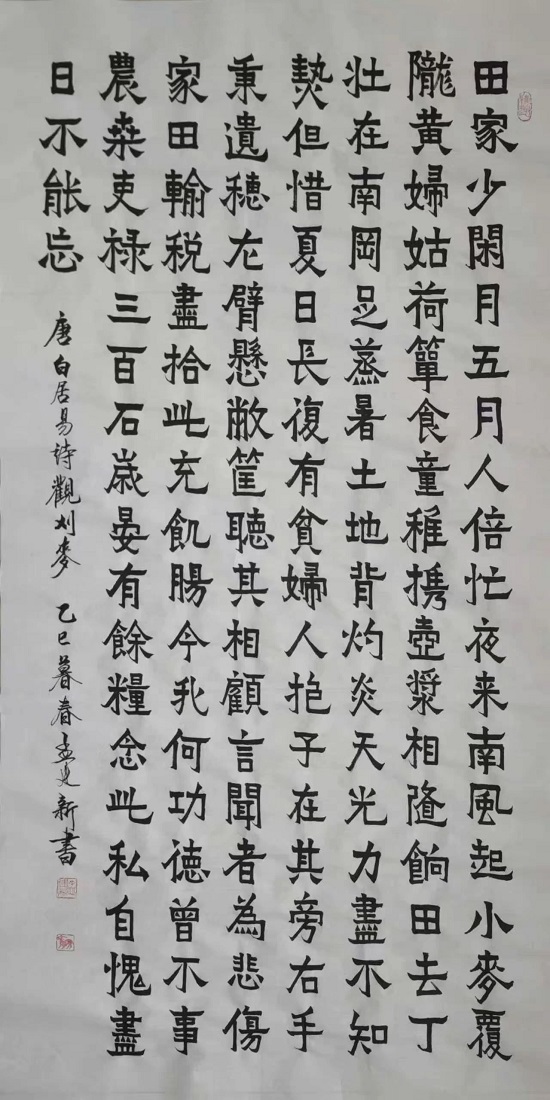 田家少閑月五月人倍忙夜来南風起小麥覆
隴黄婦姑荷簞食童稚携壺漿相隨餉田去丁
壮在南岡足蒸暑土地背灼炎天光力盡不知
熱但惜夏日長復有貧婦人抱子在其旁右手
秉遺穗左臂懸敝筐聽其相顧言聞者為悲傷
家田輸税盡拾此充飢腸今我何功徳曾不事
農桒吏禄三百石歳晏有餘糧念此私自愧盡
日不能忘
唐白居易诗觀刈麥 乙巳暮春孟新書